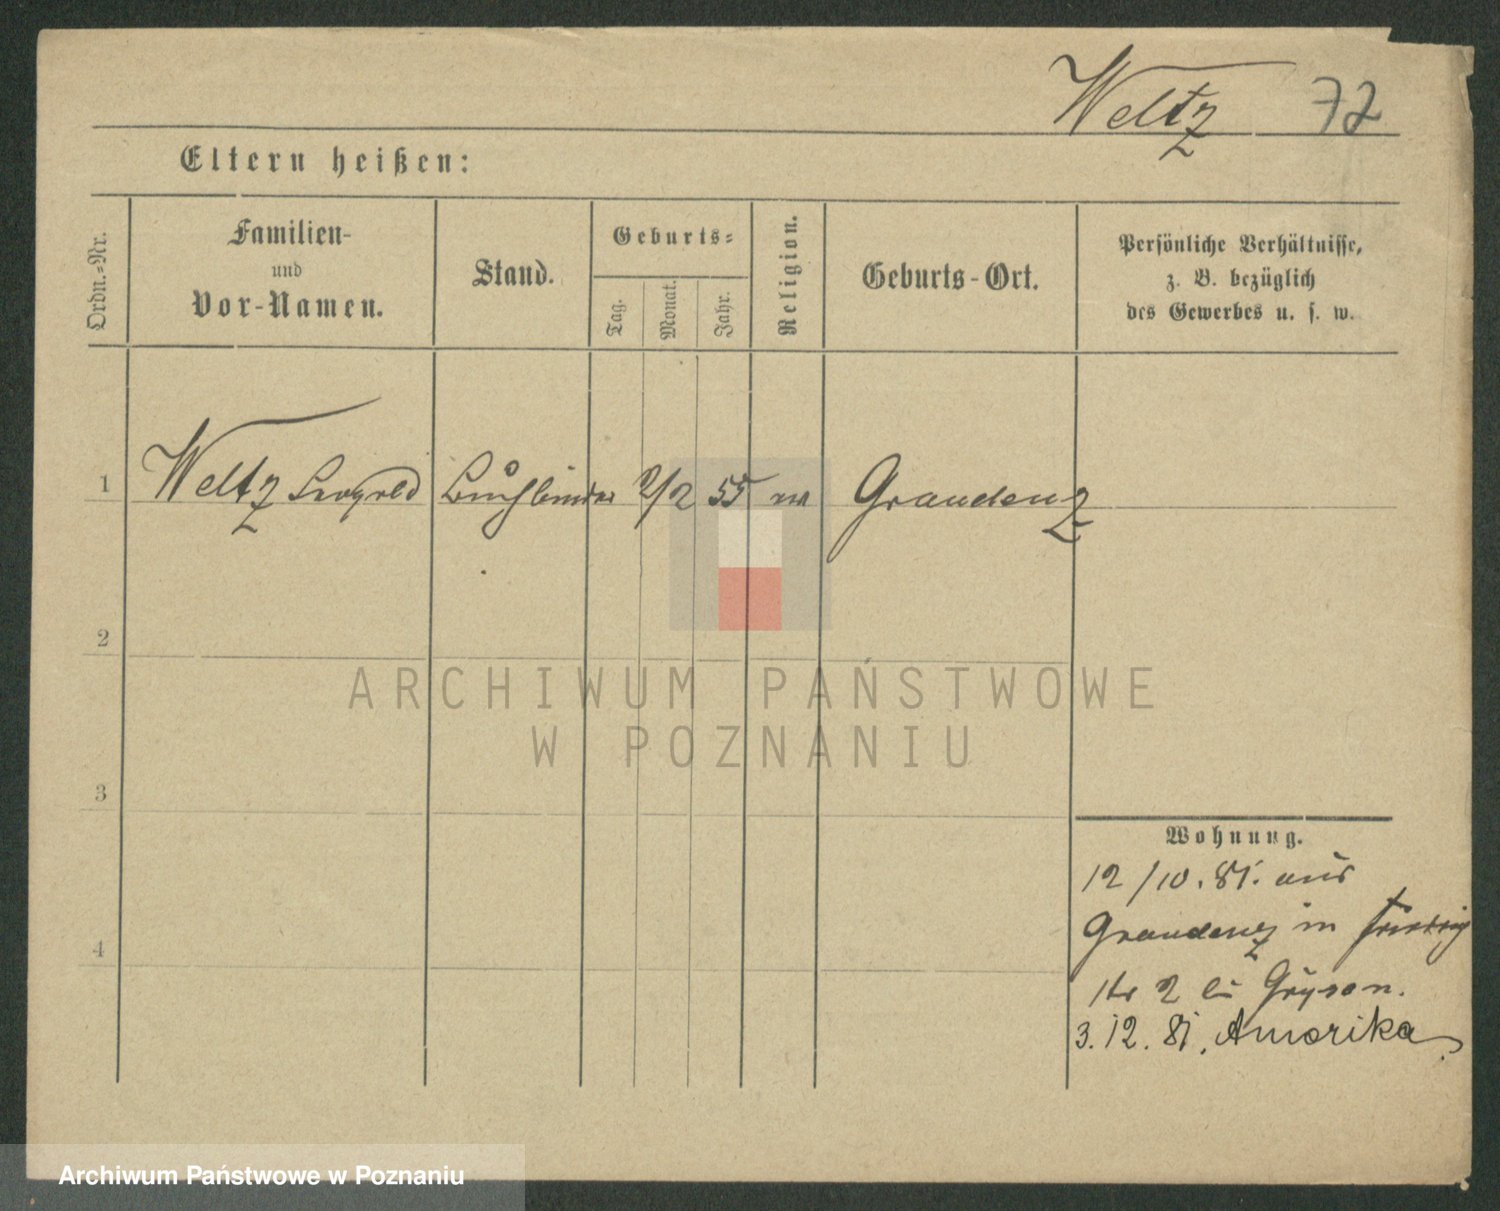 Weltz 72
Eltern heißen:
Ordn.-Nr.
Familien-
und
Vor-Namen.
Stand.
Geburts-
Tag.
Monat.
Jahr.
Religion.
Geburts-Ort.
Persönliche Verhältnisse,
z. B. bezüglich
des Gewerbes u. s. w.
1 Weltz Leopold Buchbinder 2/2 55 Graudenz
2
3
4
Wohnung.
12/10. 81. aus
Graudenz in
str 2 bei
3. 12. 81. Amerika
ARCHIWUM PAŃSTWOWE
W POZNANIU
Archiwum Państwowe w Poznaniu